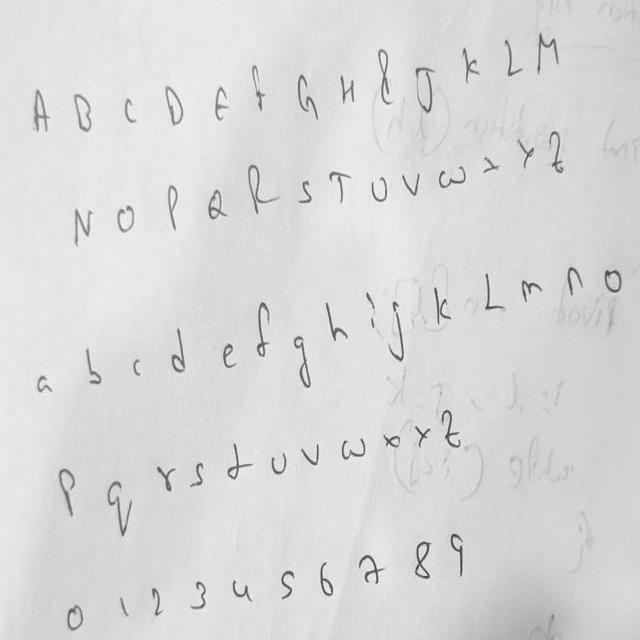 A B C D E f G H I J K L M
N O P Q R S T U V W X Y Z
a b c d e f g h i j k L m n o
p q r s t u v w x y z
0 1 2 3 4 5 6 7 8 9